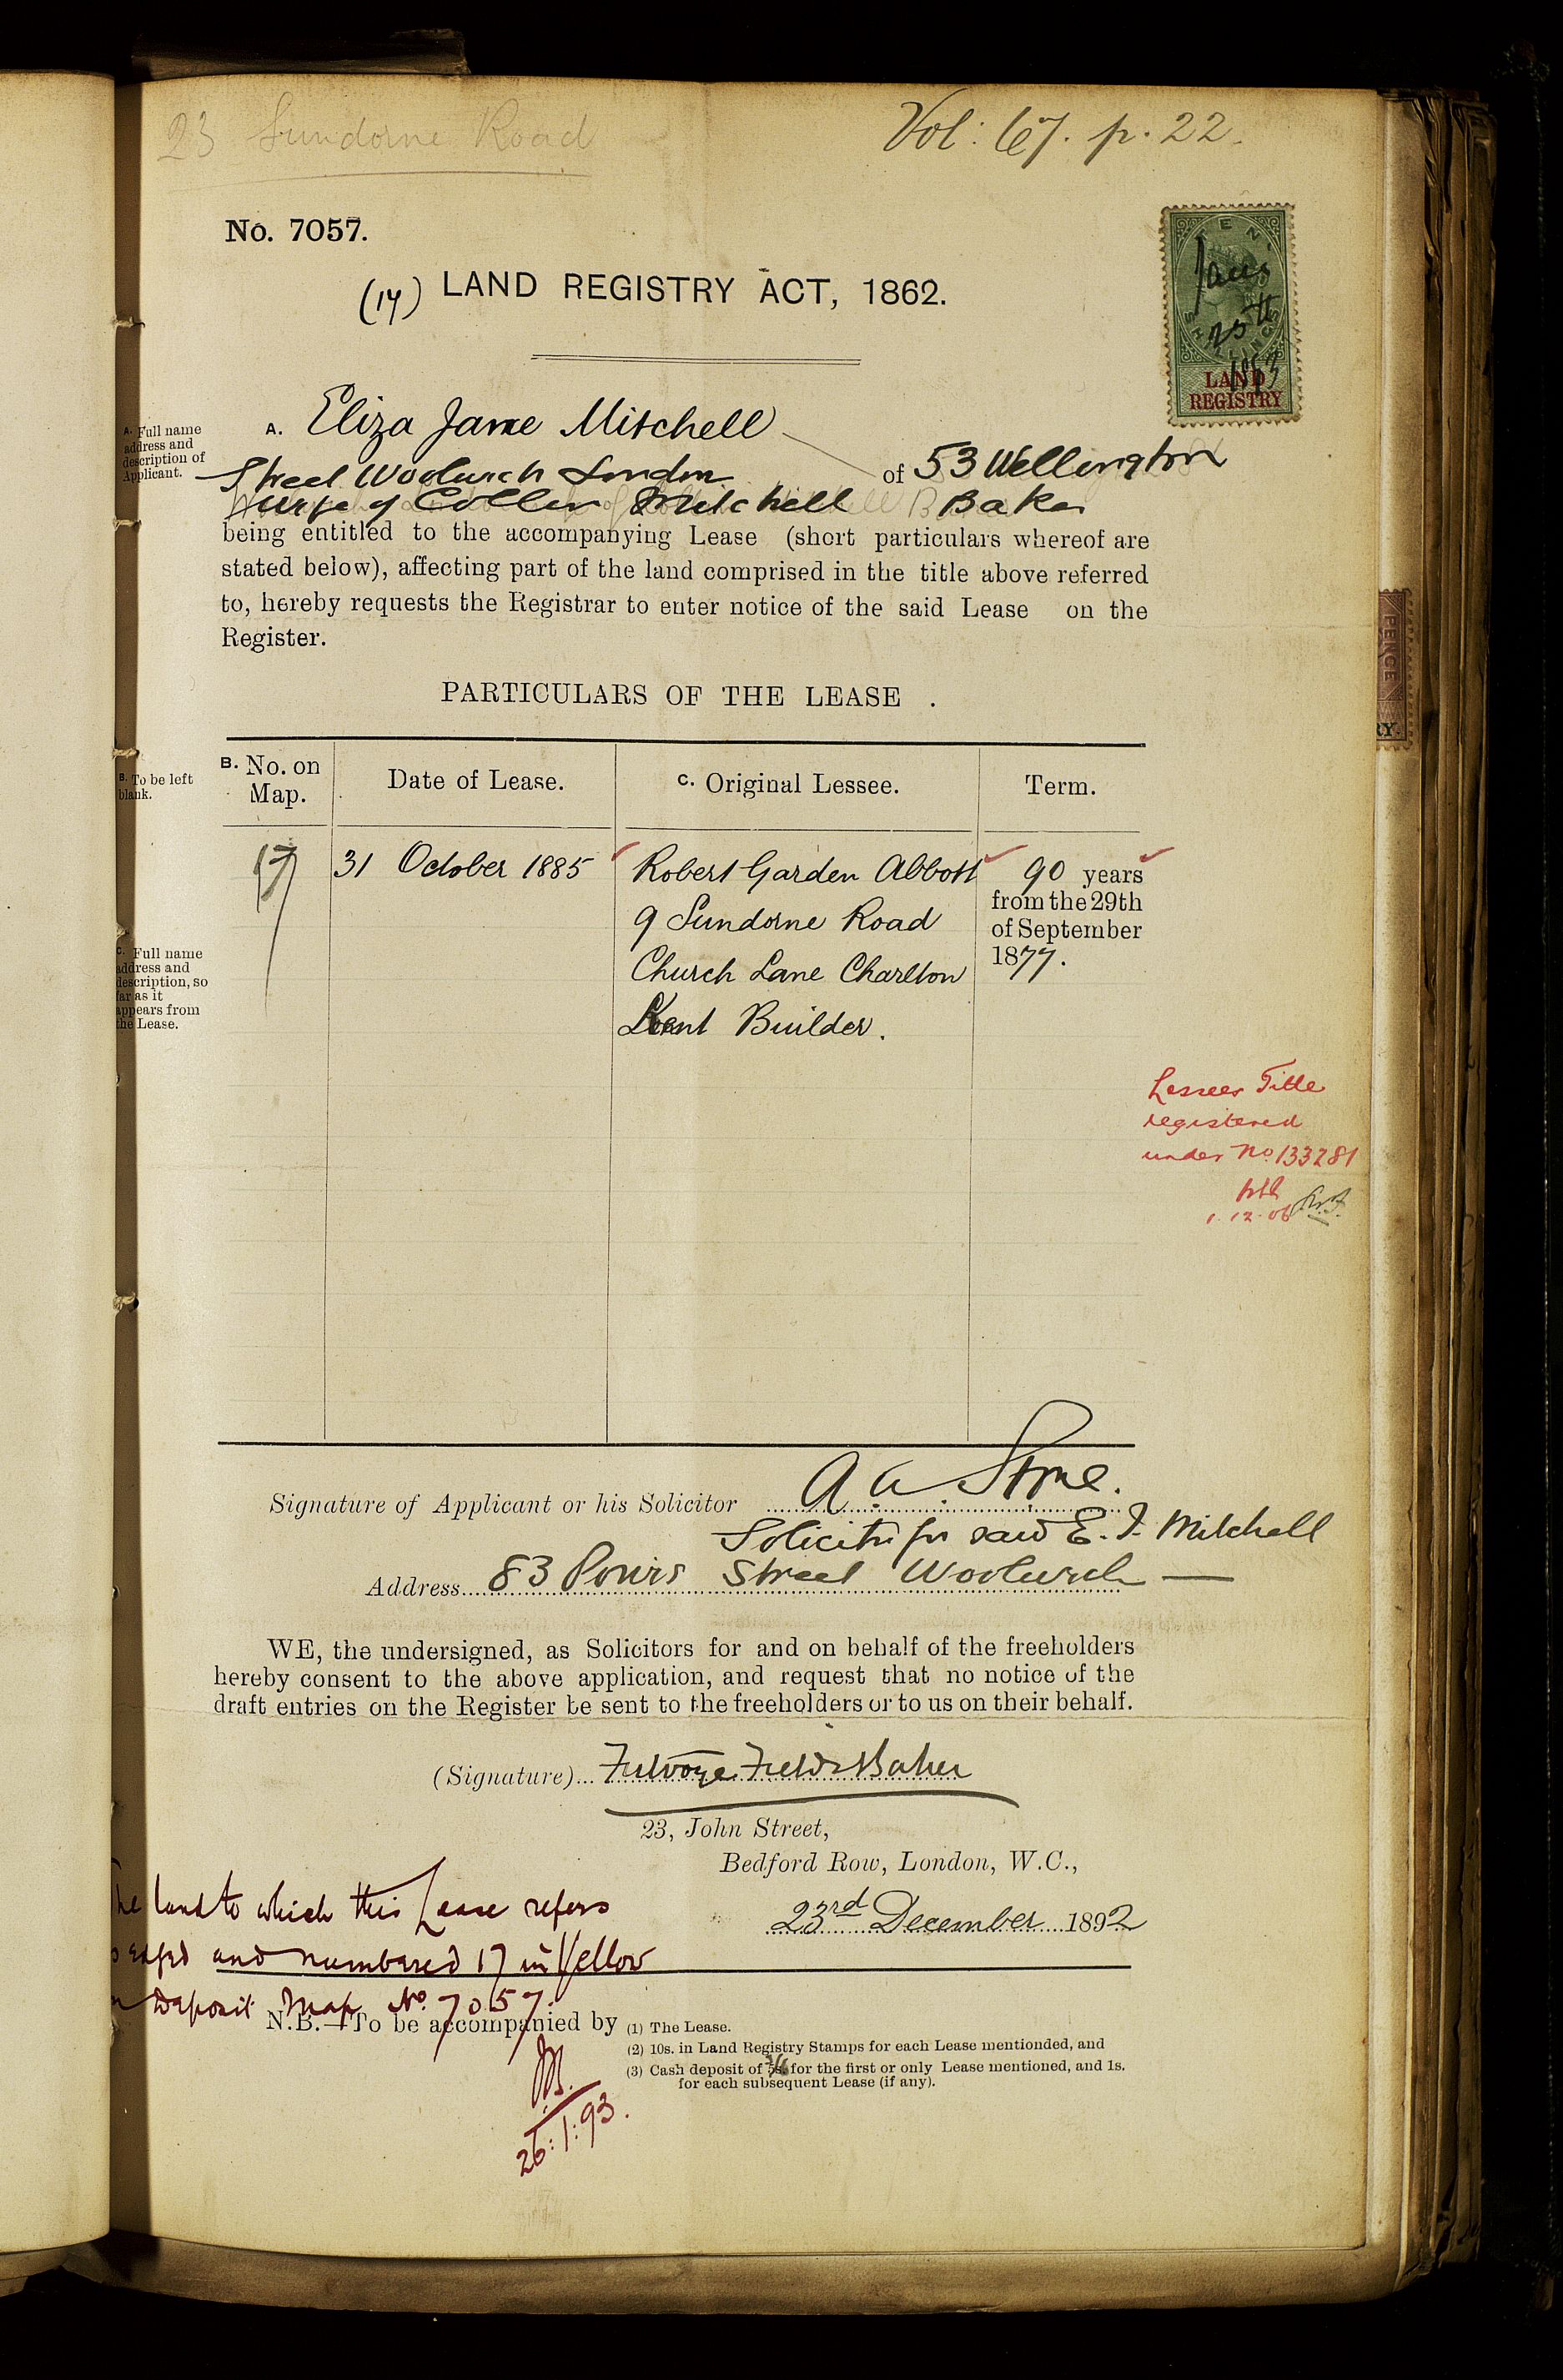 23 Sundorne Road
Vol: 67. p. 22.
No. 7057.
(17) LAND REGISTRY ACT, 1862.
Jany
25th
1893
LAND
REGISTRY
A. Full name
address and
description of
Applicant.
A. Eliza Jane Mitchell
of 53 Wellington
Street Woolwich London
Wife of Collin Mitchell Baker
being entitled to the accompanying Lease (short particulars whereof are
stated below), affecting part of the land comprised in the title above referred
to, hereby requests the Registrar to enter notice of the said Lease on the
Register.
PARTICULARS OF THE LEASE .
B. To be left
blank.
B. No. on
Map.
Date of Lease.
C. Original Lessee.
Term.
17
31 October 1885
Robert Garden Abbott
9 Sundorne Road
Church Lane Charlton
Kent Builder.
90 years
from the 29th
of September
1877.
C. Full name
address and
description, so
far as it
appears from
the Lease.
Lessees Title
registered
under No. 133281
1.12.06
Signature of Applicant or his Solicitor A. A. Stone.
Solicitor for said E. J. Mitchell
Address 83 Powis Street Woolwich
WE, the undersigned, as Solicitors for and on behalf of the freeholders
hereby consent to the above application, and request that no notice of the
draft entries on the Register be sent to the freeholders or to us on their behalf.
(Signature) Fulvoye Field & Baker
23, John Street,
Bedford Row, London, W.C.,
23rd December 1892
The land to which this Lease refers
edged and numbered 17 in Yellow
on Deposit Map No. 7057.
26:1:93.
N.B.—To be accompanied by (1) The Lease.
(2) 10s. in Land Registry Stamps for each Lease mentionded, and
(3) Cash deposit of for the first or only Lease mentioned, and 1s.
for each subsequent Lease (if any).
PENCE
RY.